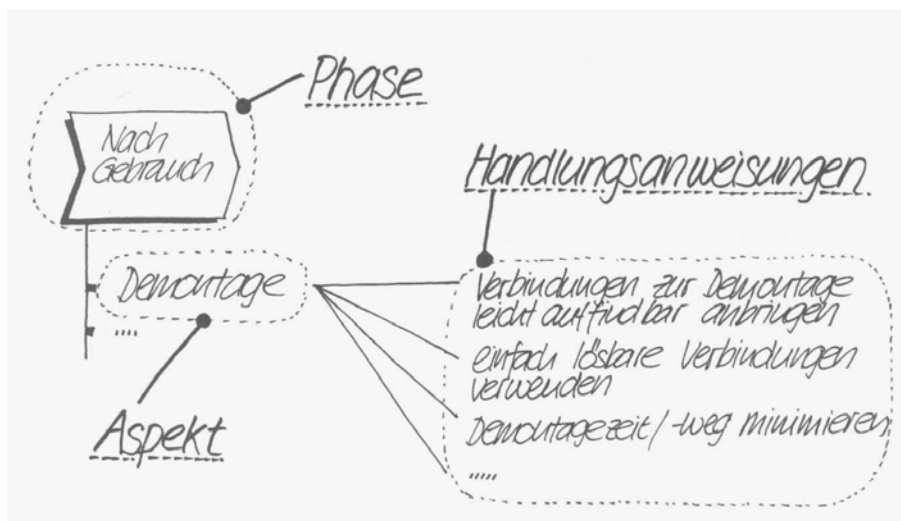 Phase
Nach
Gebrauch
Handlungsanweisungen
Demontage
.....
Aspekt
Verbindungen zur Demontage
leicht auffindbar anbringen
einfach lösbare Verbindungen
verwenden
Demontagezeit/-weg minimieren
.....